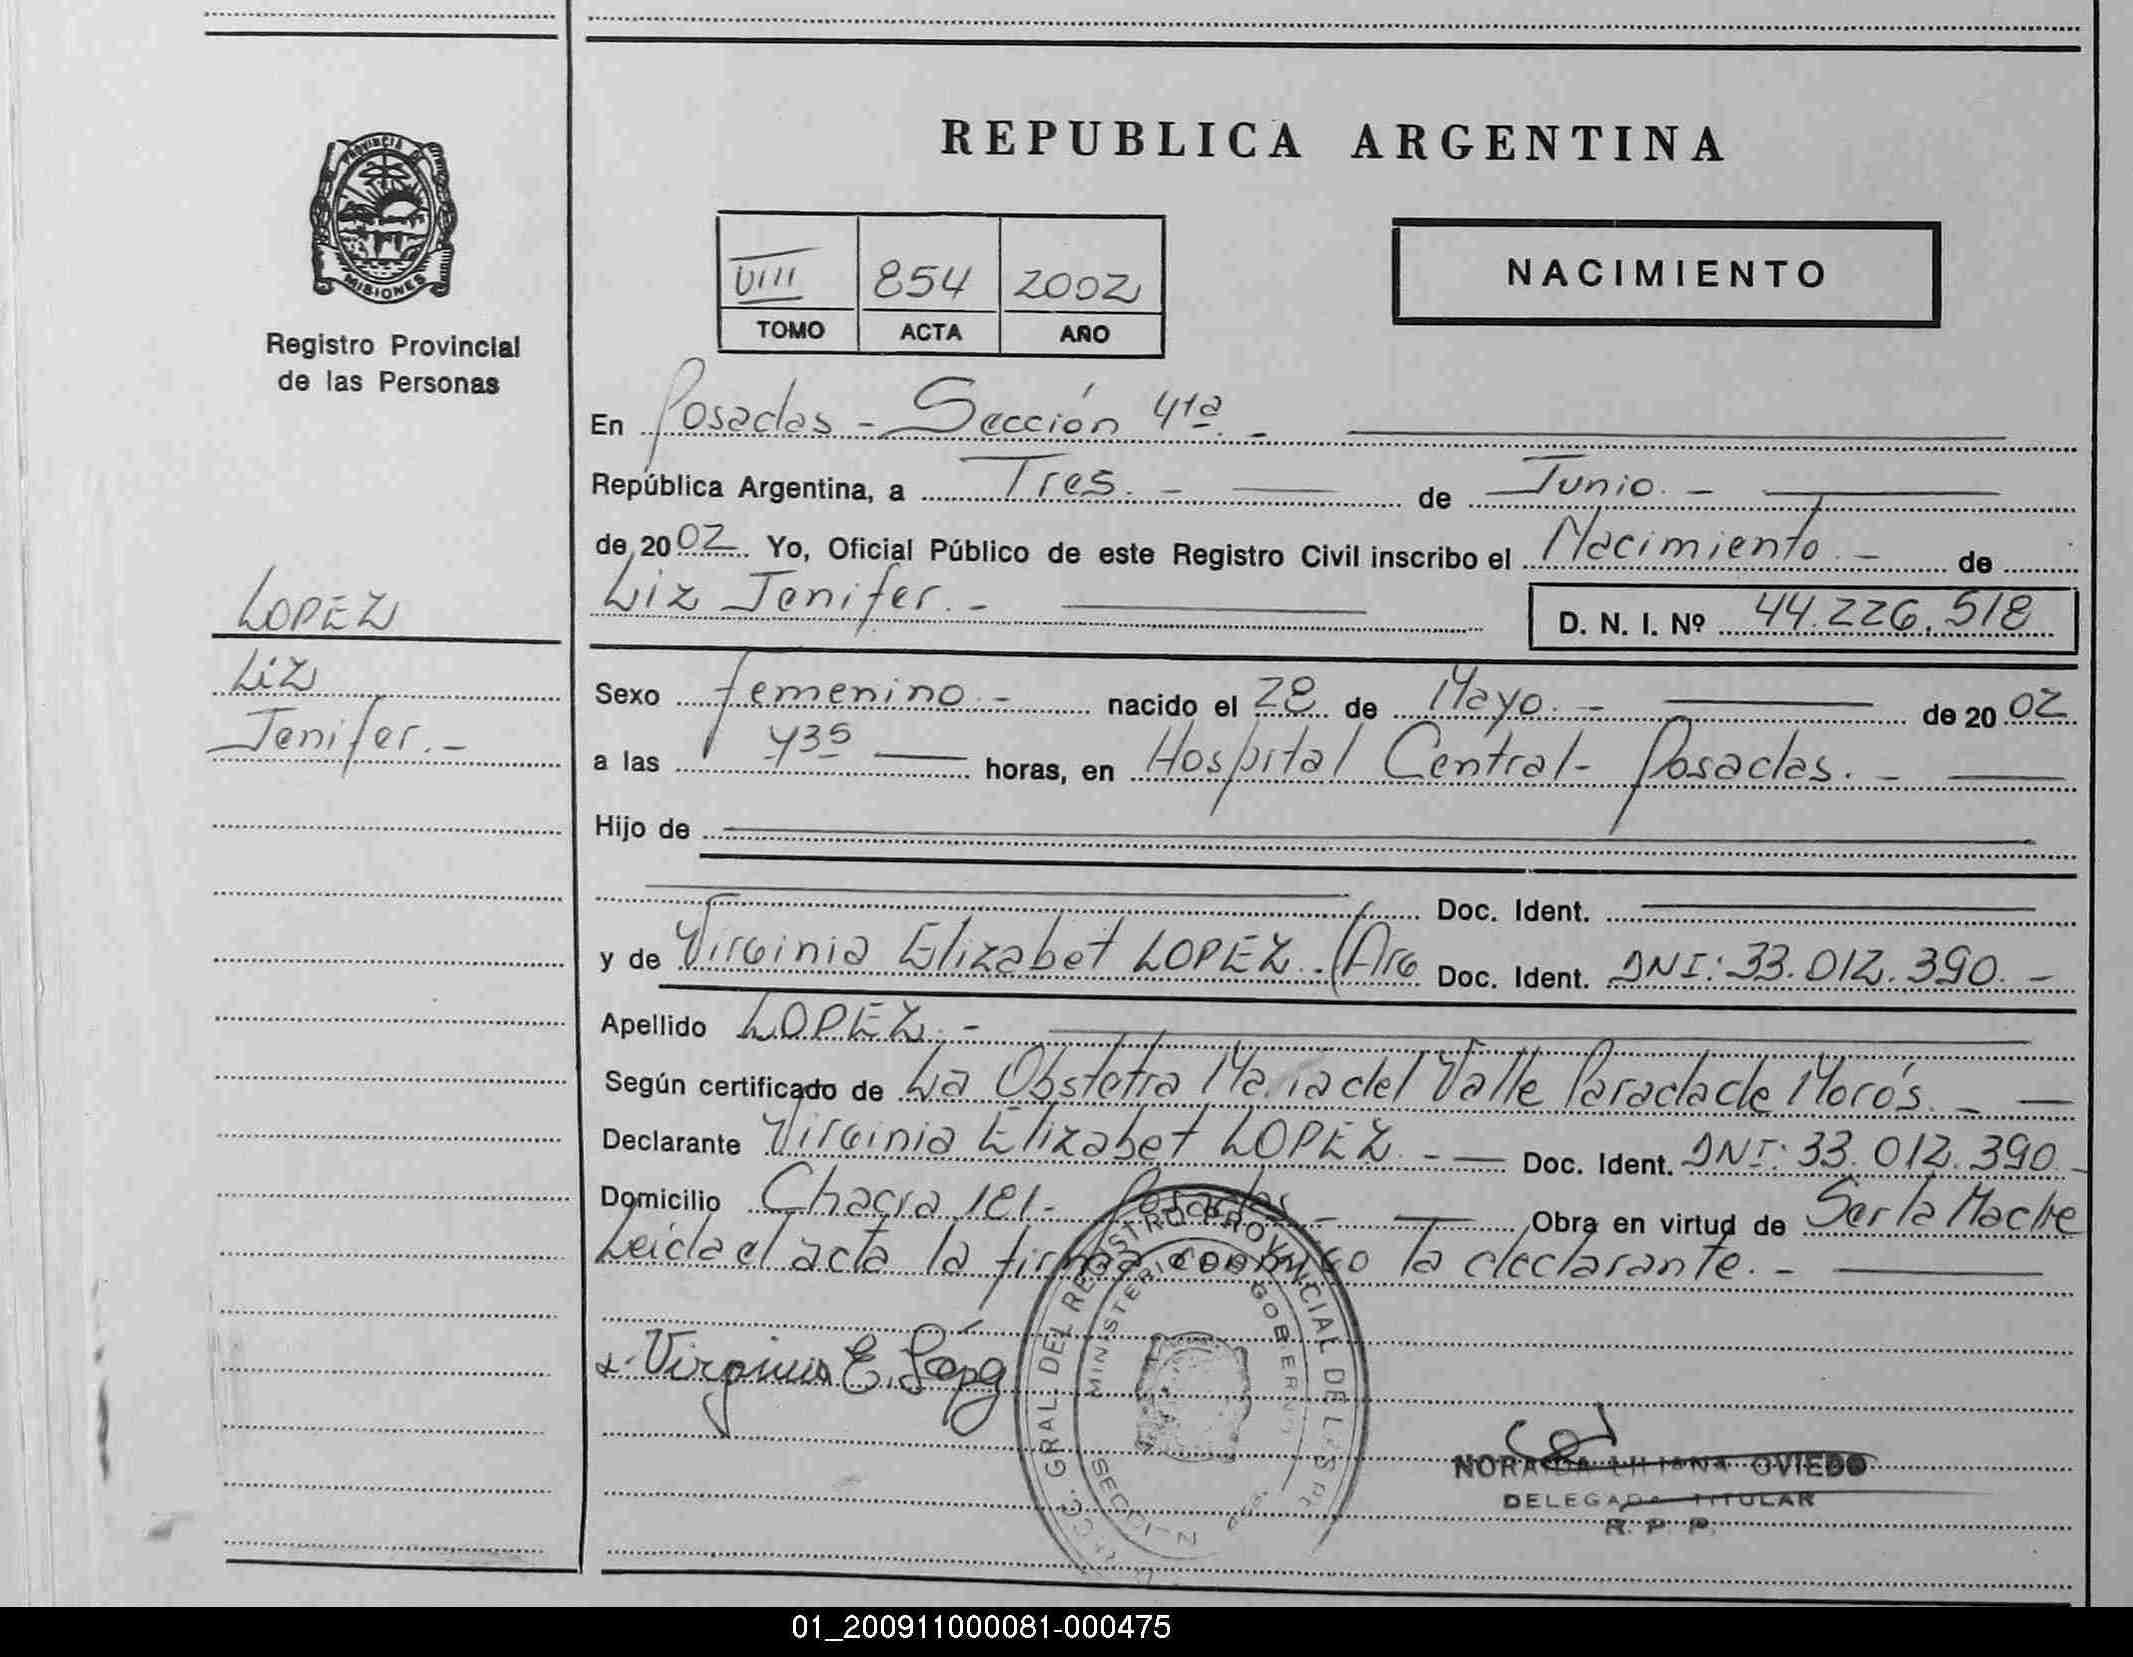 REPUBLICA ARGENTINA
PROVINCIA DE
MISIONES
Registro Provincial
de las Personas
VIII 854 2002
TOMO ACTA AÑO
NACIMIENTO
En Posadas - Sección 4ta. -
República Argentina, a Tres. - de Junio. -
de 2002 Yo, Oficial Público de este Registro Civil inscribo el Nacimiento. - de
Liz Jenifer. - D. N. I. Nº 44.226.518
LOPEZ
Liz
Jenifer. -
Sexo femenino. - nacido el 28 de Mayo. - de 2002
a las 435 horas, en Hospital Central - Posadas. -
Hijo de
Doc. Ident.
y de Virginia Elizabet LOPEZ. (Arg Doc. Ident. DNI: 33.012.390. -
Apellido LOPEZ. -
Según certificado de La Obstetra Maria del Valle Parada de Morós. -
Declarante Virginia Elizabet LOPEZ. - Doc. Ident. DNI: 33.012.390 -
Domicilio Chacra 181 - Posadas - Obra en virtud de Ser la Madre
Leída el acta la firma conmigo la declarante. -
Virginia E. López
GRAL. DEL REGISTRO PROVINCIAL DE LAS
MINISTERIO DE GOBIERNO
NORAIDA LILIANA OVIEDO
DELEGADA TITULAR
R. P. P.
01_200911000081-000475